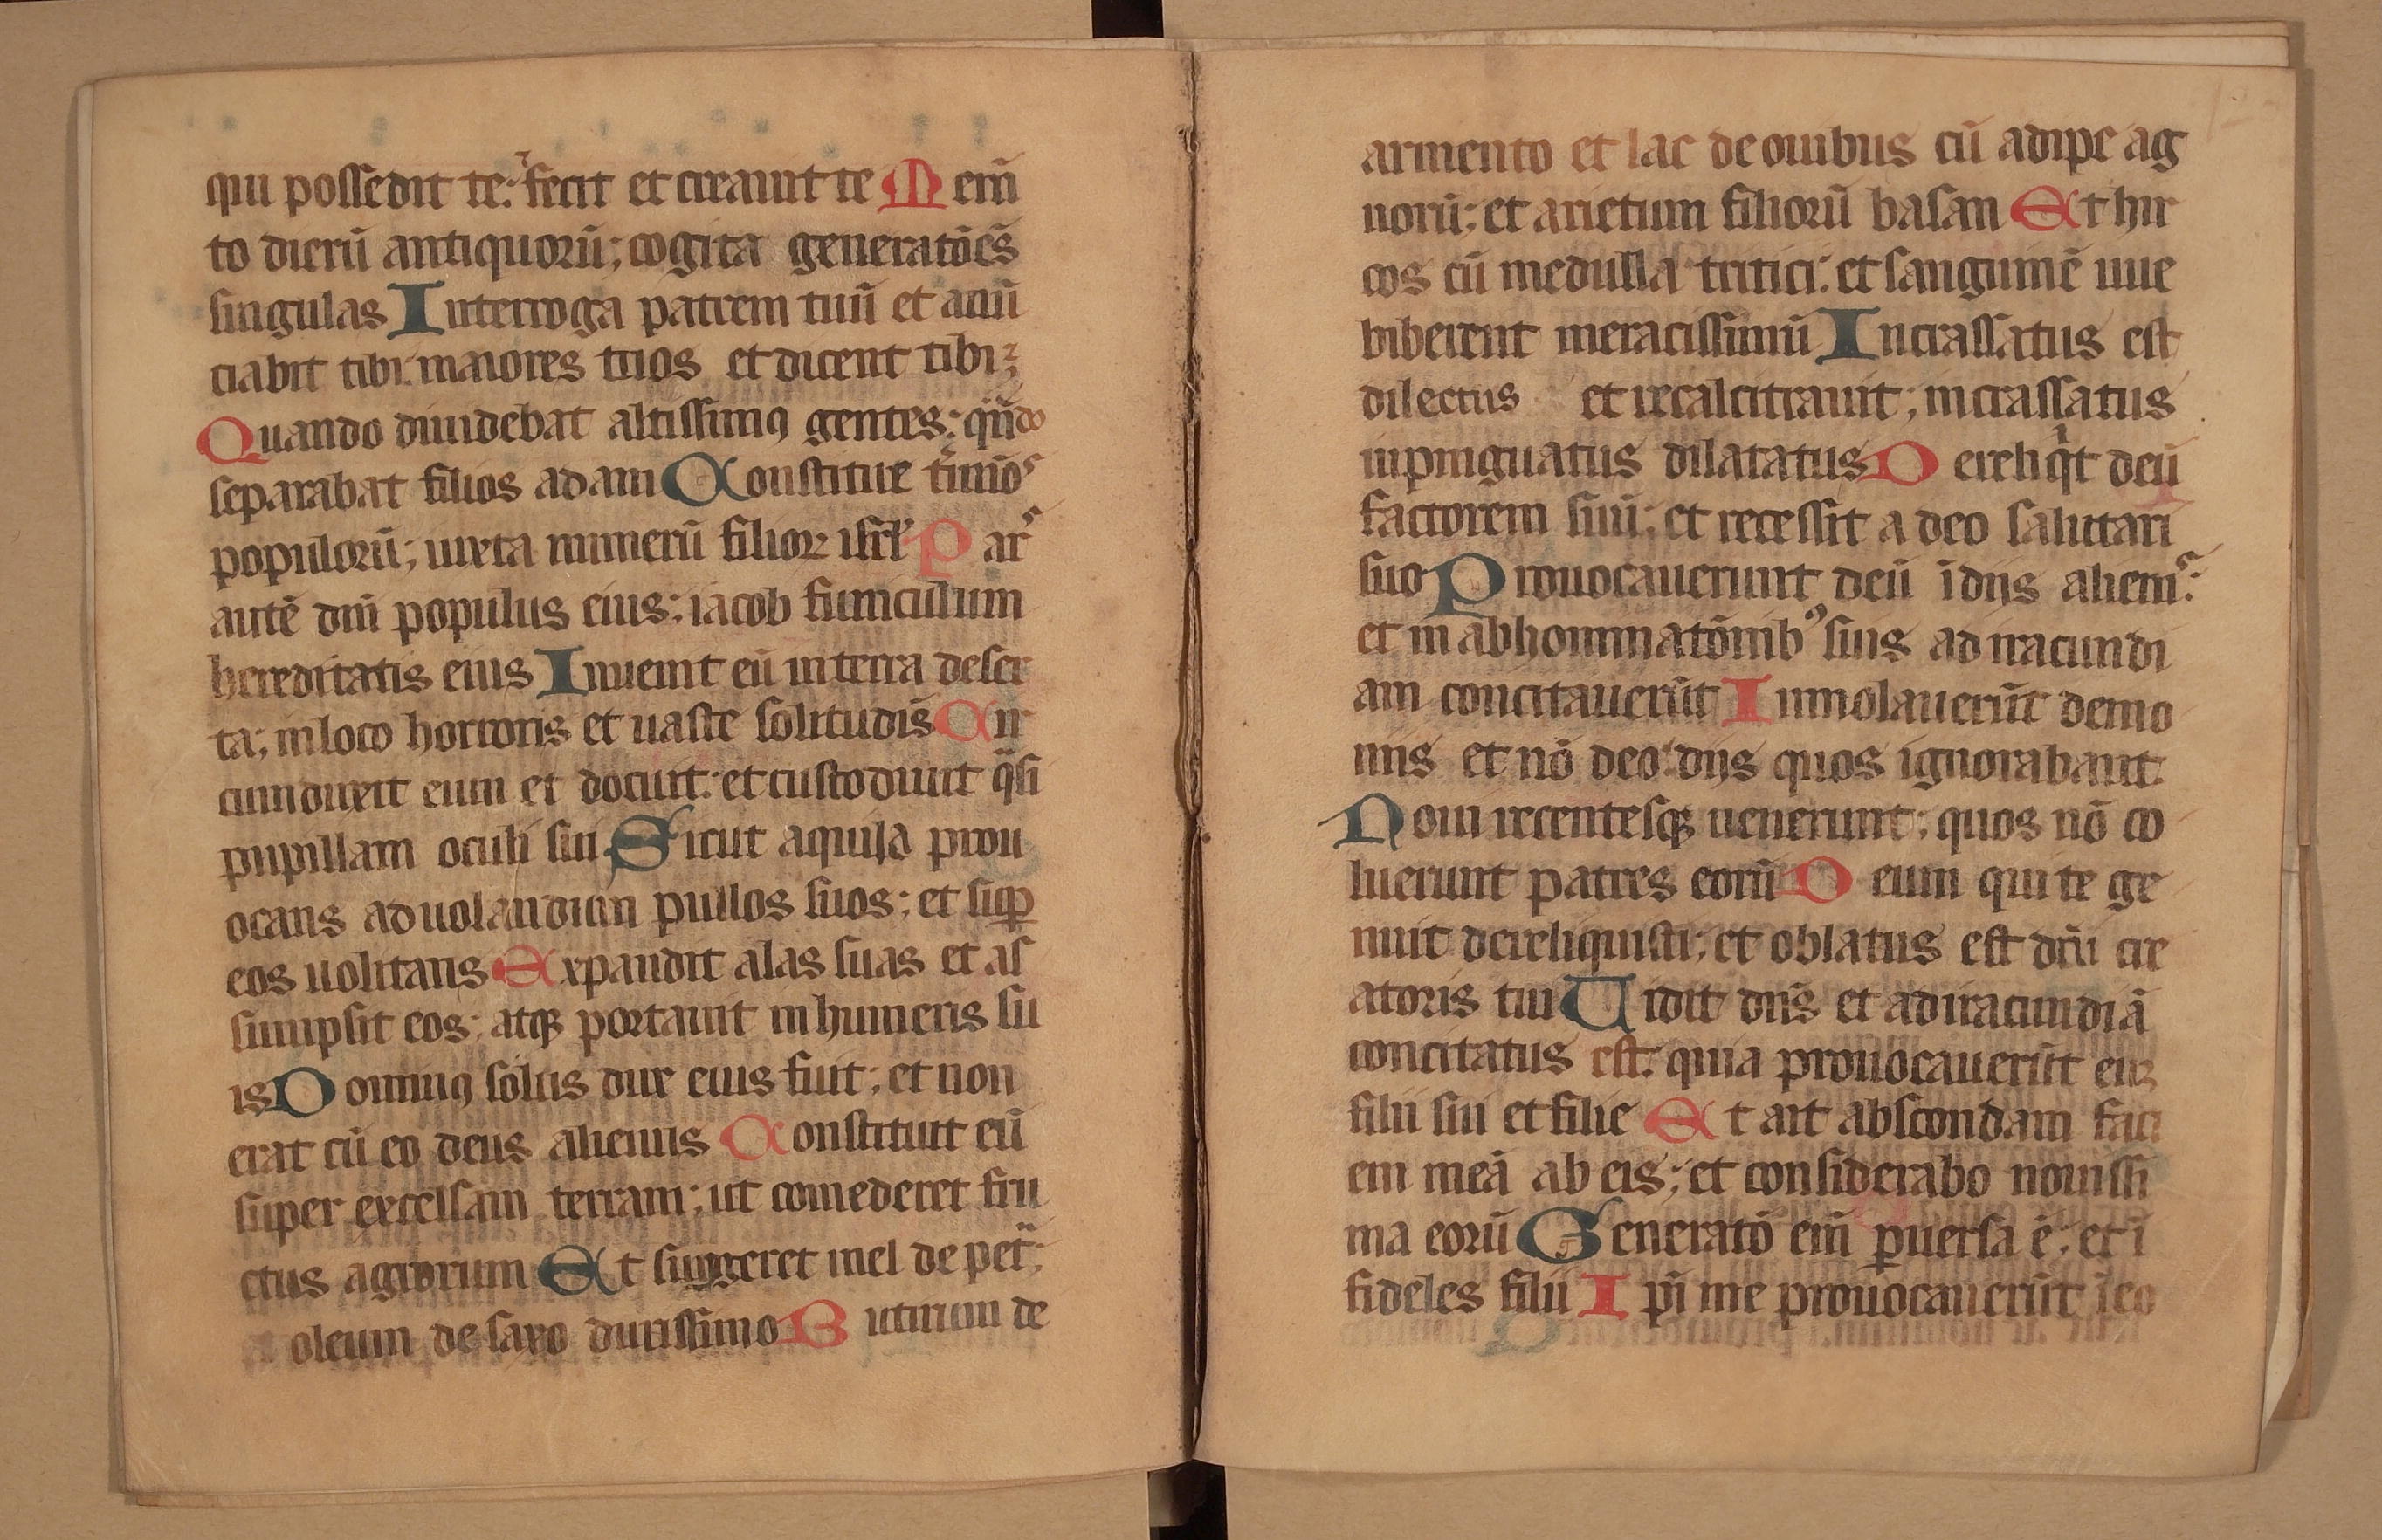 qui possedit te: fecit et creauit te Mem̄
to dierū antiquorū; cogita generatōēs
singulas Interroga patrem tuū et anū
ciabit tibi: maiores tuos et dicent tibi;
Quando diuidebat altissimꝰ gentes: qn̄do
separabat filios adam Constituit t̄mīos
populorū; iuxta numerū filioꝝ isrl̄ Pars
autē dn̄i populus eius: iacob funiculum
hereditatis eius Inuenit eū in terra deser
ta; in loco horroris et uaste solitudīs Cir
cumduxit eum et docuit: et custodiuit q̄si
pupillam oculi sui Sicut aquila prou
ocans ad uolandum pullos suos; et suꝑ
eos uolitans Expandit alas suas et as
sumpsit eos: atqꝫ portauit in humeris su
is Dominꝰ solus dux eius fuit; et non
erat cū eo deus alienus Constituit eū
super excelsam terram; ut comederet fru
ctus agrorum Et suggeret mel de pet̄:
oleum de saxo durissimo Butirum de
armento et lac de ouibus cū adipe ag
norū; et arietum filiorū basan Et hir
cos cū medulla tritici: et sanguinē uue
biberent meracissimū Incrassatus est
dilectus et recalcitrauit; incrassatus
inpinguatus dilatatus Dereliqͥt deū
factorem suū; et recessit a deo salutari
suo Prouocauerunt deū ī diis alienis:
et in abhominatōnibꝰ suis ad iracundi
am concitauerūt Inmolauerūt demo
niis et nō deo: diis quos ignorabant
Noui recentesqꝫ uenerunt; quos nō co
luerunt patres eorū Deum qui te ge
nuit dereliquisti; et oblatus est dn̄i cre
atoris tui Uidit dn̄s et ad iracundiā
concitatus est: quia prouocauerūt euꝫ
filii sui et filie Et ait abscondam faci
em meā ab eis; et considerabo nouissi
ma eorū Generatō em̄ ꝑuersa ē; et ī
fideles filii Ipi me prouocauerūt ī eo